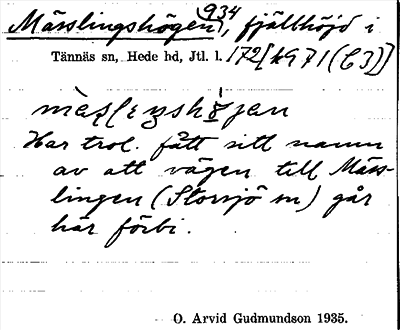 Mässlingshögen 934, fjällhöjd i
Tännäs sn, Hede hd, Jtl. l. 172[k971(C3)]
mæslεŋshöjen
Har trol. fått sitt namn
av att vägen till Mäss-
lingen (Storsjö sn) går
här förbi.
O. Arvid Gudmundson 1935.